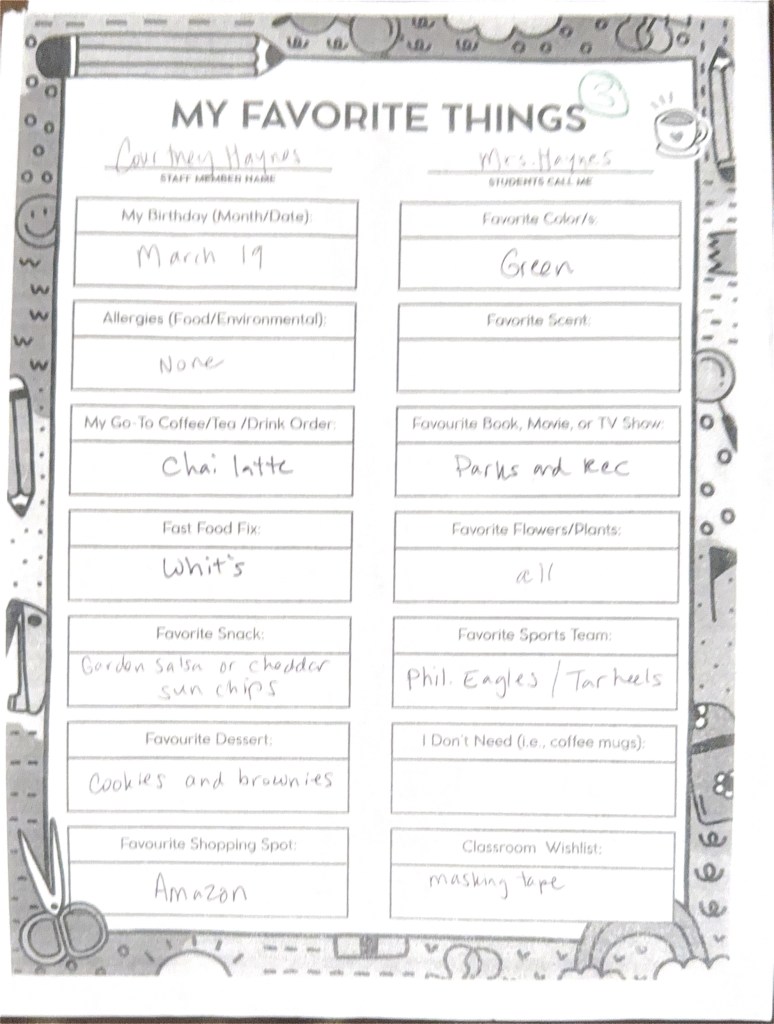 3
MY FAVORITE THINGS
Courtney Haynes
STAFF MEMBER NAME
Mrs. Haynes
STUDENTS CALL ME
My Birthday (Month/Date):
March 19
Favorite Color/s:
Green
Allergies (Food/Environmental):
None
Favorite Scent:
My Go-To Coffee/Tea /Drink Order:
Chai latte
Favourite Book, Movie, or TV Show:
Parks and Rec
Fast Food Fix:
Whit's
Favorite Flowers/Plants:
all
Favorite Snack:
Garden Salsa or cheddar
sun chips
Favorite Sports Team:
Phil. Eagles / Tarheels
Favourite Dessert:
Cookies and brownies
I Don't Need (i.e., coffee mugs):
Favourite Shopping Spot:
Amazon
Classroom Wishlist:
masking tape